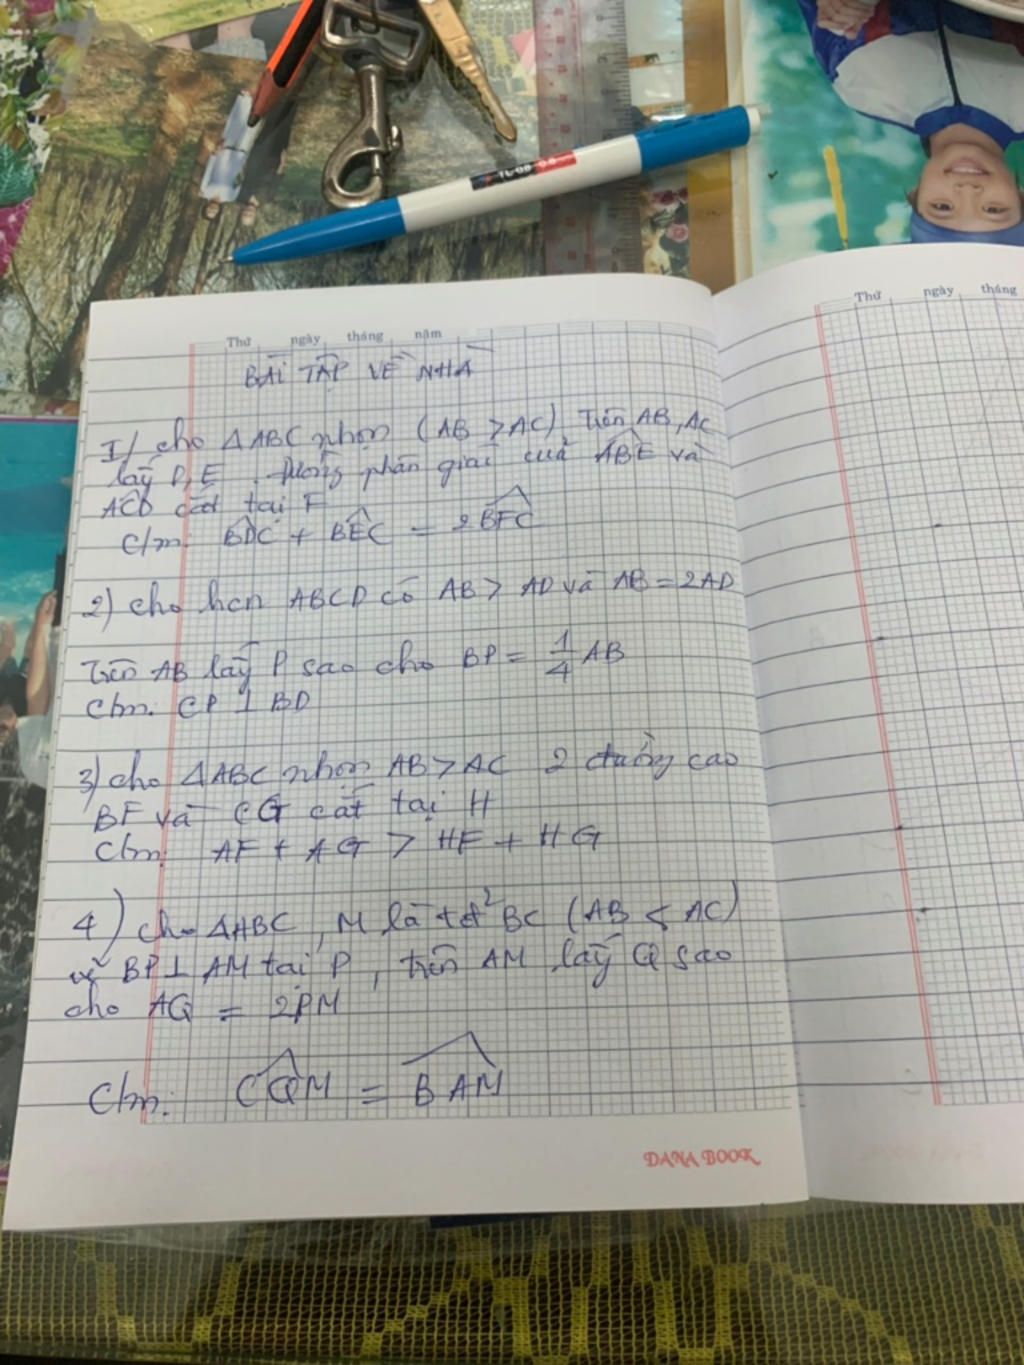 TL-08 0.6
Thứ ngày tháng năm
Thứ ngày tháng
BÀI TẬP VỀ NHÀ
1/ cho △ABC nhọn (AB > AC) Trên AB, AC
lấy D, E . Đường phân giác của ABE và
ACD cắt tại F
C/m: BDC + BEC = 2BFC
2) cho hcn ABCD có AB > AD và AB = 2AD
Trên AB lấy P sao cho BP = 1/4 AB
Cbm. CP ⊥ BD
3) cho △ABC nhọn AB > AC 2 đường cao
BF và CG cắt tại H
C/m: AF + AG > HF + HG
4) cho △ABC, M là tđ² BC (AB < AC)
vẽ BP ⊥ AM tại P, trên AM lấy Q sao
cho AQ = 2PM
C/m: CQM = BAM
DANA BOOK